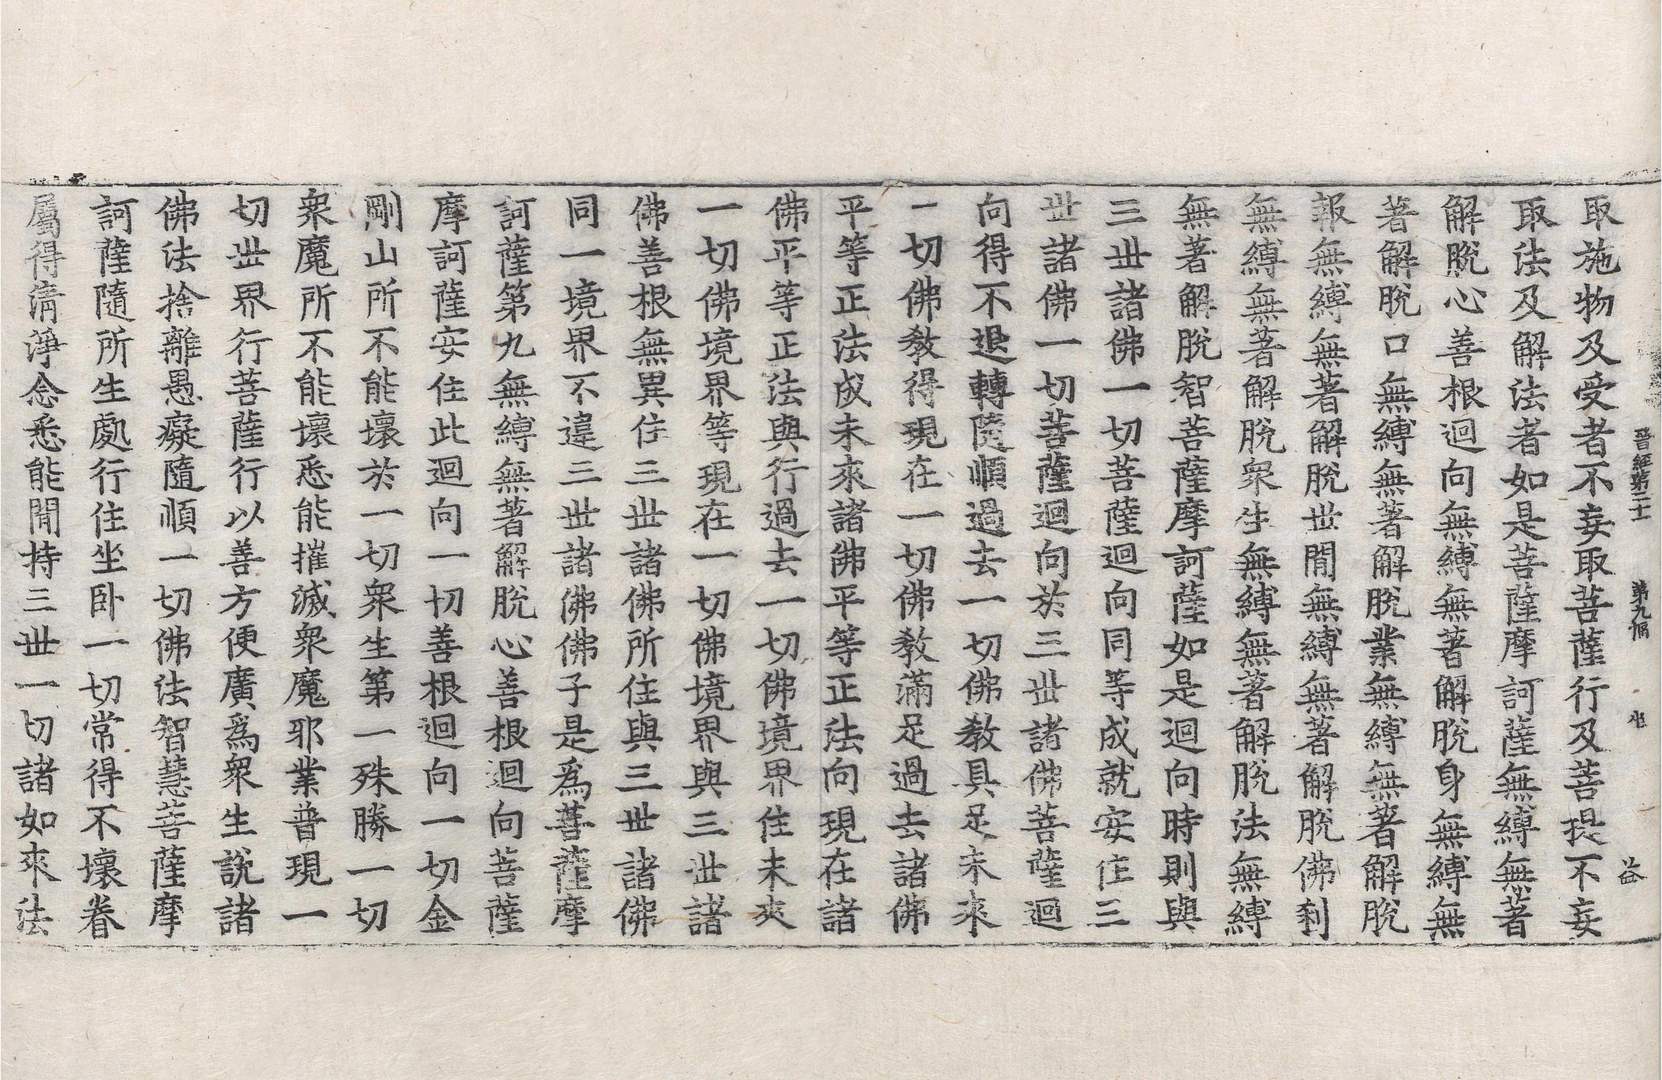 晉經第二十 第九幅
取施物及受者不妄取菩薩行及菩提不妄
取法及解法者如是菩薩摩訶薩無縛無著
解脫心善根迴向無縛無著解脫身無縛無
著解脫口無縛無著解脫業無縛無著解脫
報無縛無著解脫世間無縛無著解脫佛刹
無縛無著解脫衆生無縛無著解脫法無縛
無著解脫智菩薩摩訶薩如是迴向時則與
三世諸佛一切菩薩迴向同等成就安住三
世諸佛一切菩薩迴向於三世諸佛菩薩迴
向得不退轉隨順過去一切佛教具足未來
一切佛教得現在一切佛教滿足過去諸佛
平等正法成未來諸佛平等正法向現在諸
佛平等正法與行過去一切佛境界住未來
一切佛境界等現在一切佛境界與三世諸
佛善根無異住三世諸佛所住與三世諸佛
同一境界不違三世諸佛佛子是爲菩薩摩
訶薩第九無縛無著解脫心善根迴向菩薩
摩訶薩安住此迴向一切善根迴向一切金
剛山所不能壞於一切衆生第一殊勝一切
衆魔所不能壞悉能摧滅衆魔耶業普現一
切世界行菩薩行以善方便廣爲衆生說諸
佛法捨離愚癡隨順一切佛法智慧菩薩摩
訶薩隨所生處行住坐卧一切常得不壞眷
屬得淸淨念悉能聞持三世一切諸如來法